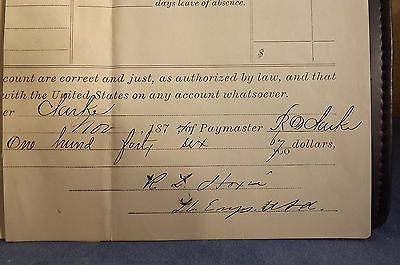 days leave of absence.
$
count are correct and just, as authorized by law, and that
with the United States on any account whatsoever.
er Clarke
1100, 187 of Paymaster R D Clarke
One hund forty six 67/100 dollars,
R. L. Hoxie
Lt. Engrs. U S A.